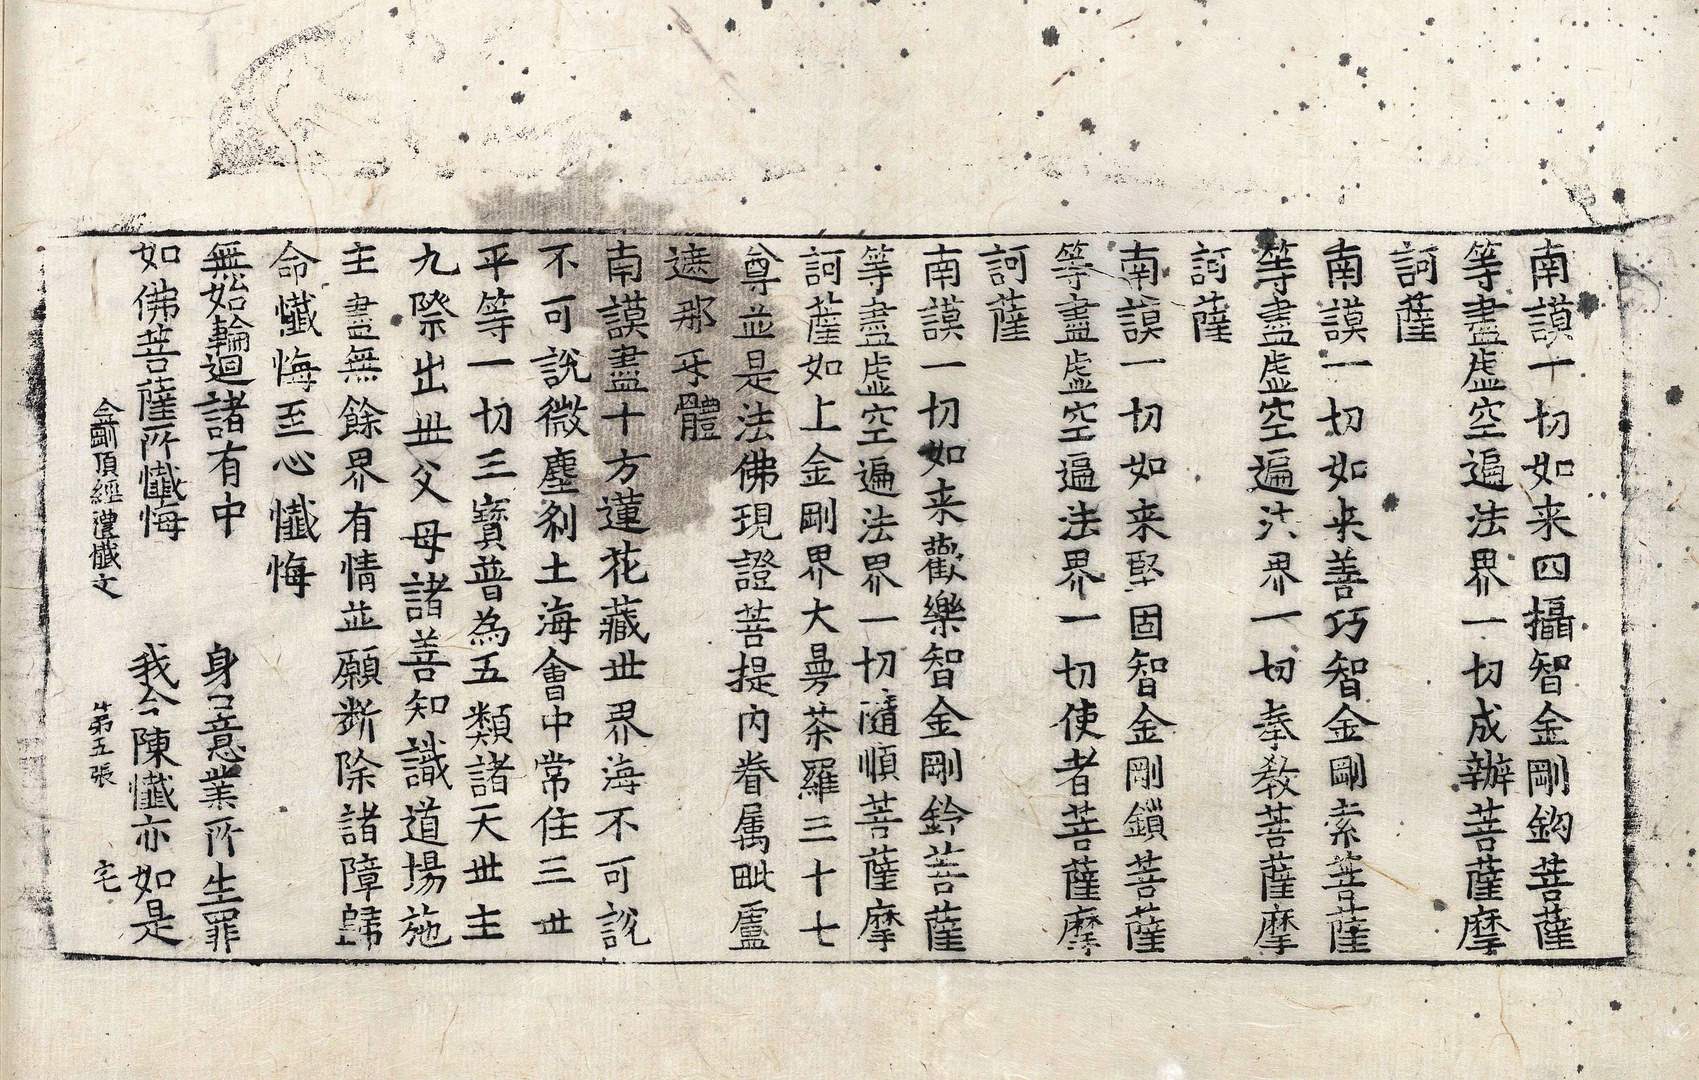 南謨一切如来四攝智金剛鈎菩薩
等盡虛空遍法界一切成辦菩薩摩
訶薩
南謨一切如来善巧智金剛索菩薩
等盡虛空遍法界一切奉教菩薩摩
訶薩
南謨一切如来堅固智金剛鎖菩薩
等盡虛空遍法界一切使者菩薩摩
訶薩
南謨一切如来歡樂智金剛鈴菩薩
等盡虛空遍法界一切隨順菩薩摩
訶薩如上金剛界大曼荼羅三十七
尊並是法佛現證菩提内眷属毗盧
遮那𠃵體
南謨盡十方蓮花藏世界海不可說
不可說微塵刹土海會中常住三世
平等一切三寶普為五類諸天世主
九際出世父母諸善知識道場施
主盡無餘界有情並願断除諸障歸
命懺悔至心懺悔
無始輪迴諸有中 身口意業所生罪
如佛菩薩所懺悔 我今陳懺亦如是
金剛頂經禮懺文 第五張 宅